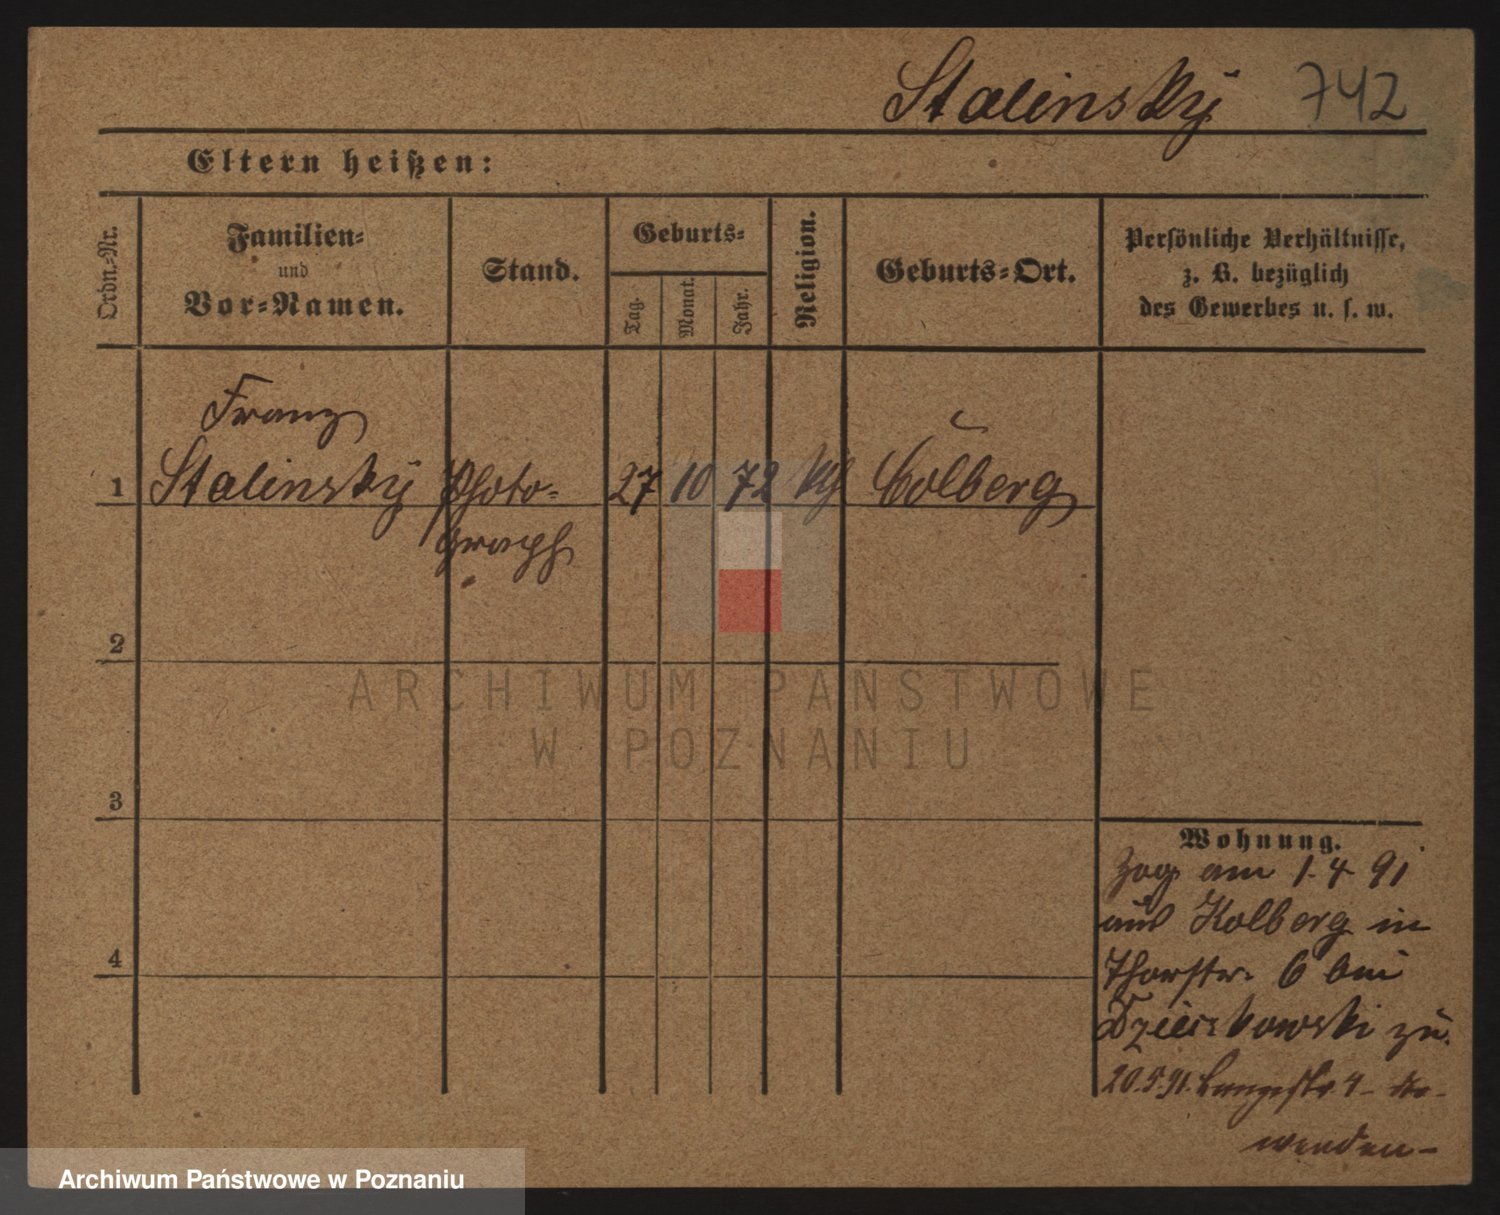 Stalinsky 742
Eltern heißen:
Ordn.-Nr.
Familien-
und
Vor-Namen.
Stand.
Geburts-
Tag.
Monat.
Jahr.
Religion.
Geburts-Ort.
Persönliche Verhältnisse,
z. B. bezüglich
des Gewerbes u. s. w.
Franz
1 Stalinsky Photo- 27 10 72 Colberg
graph
2
3
4
Wohnung.
Zog am 1. 4. 91
aus Kolberg in
Thorstr. 6 bei
zu.
20.5.91. Langestr. 4
ARCHIWUM PAŃSTWOWE
W POZNANIU
Archiwum Państwowe w Poznaniu